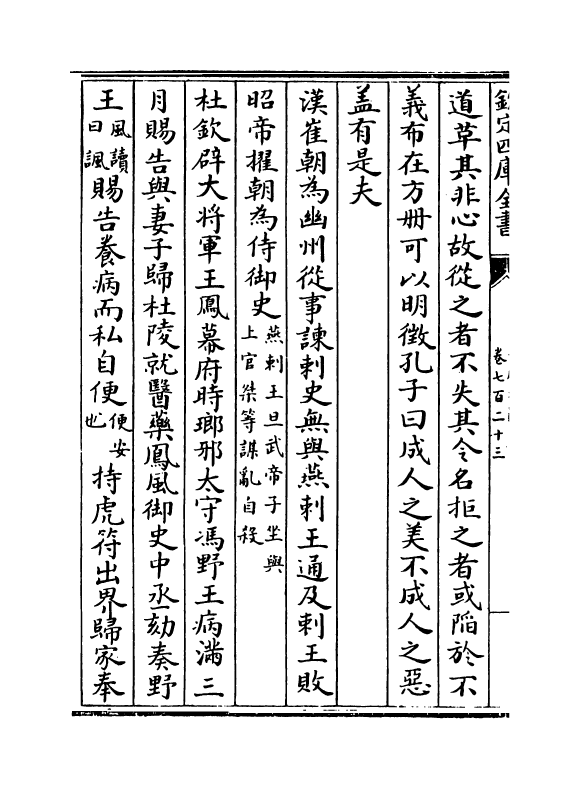 欽定四庫全書
卷七百二十三
道草其非心故從之者不失其令名拒之者或陷於不
義布在方冊可以明徵孔子曰成人之美不成人之惡
盖有是夫
漢崔朝為幽州從事諫刺史無與燕刺王通及刺王敗
昭帝擢朝為侍御史燕刺王旦武帝子坐與上官桀等謀亂自殺
杜欽辟大将軍王鳳幕府時瑯邪太守馮野王病滿三
月賜告與妻子歸杜陵就醫藥鳳風御史中丞劾奏野
王風讀曰諷賜告養病而私自便便安也持虎符出界歸家奉